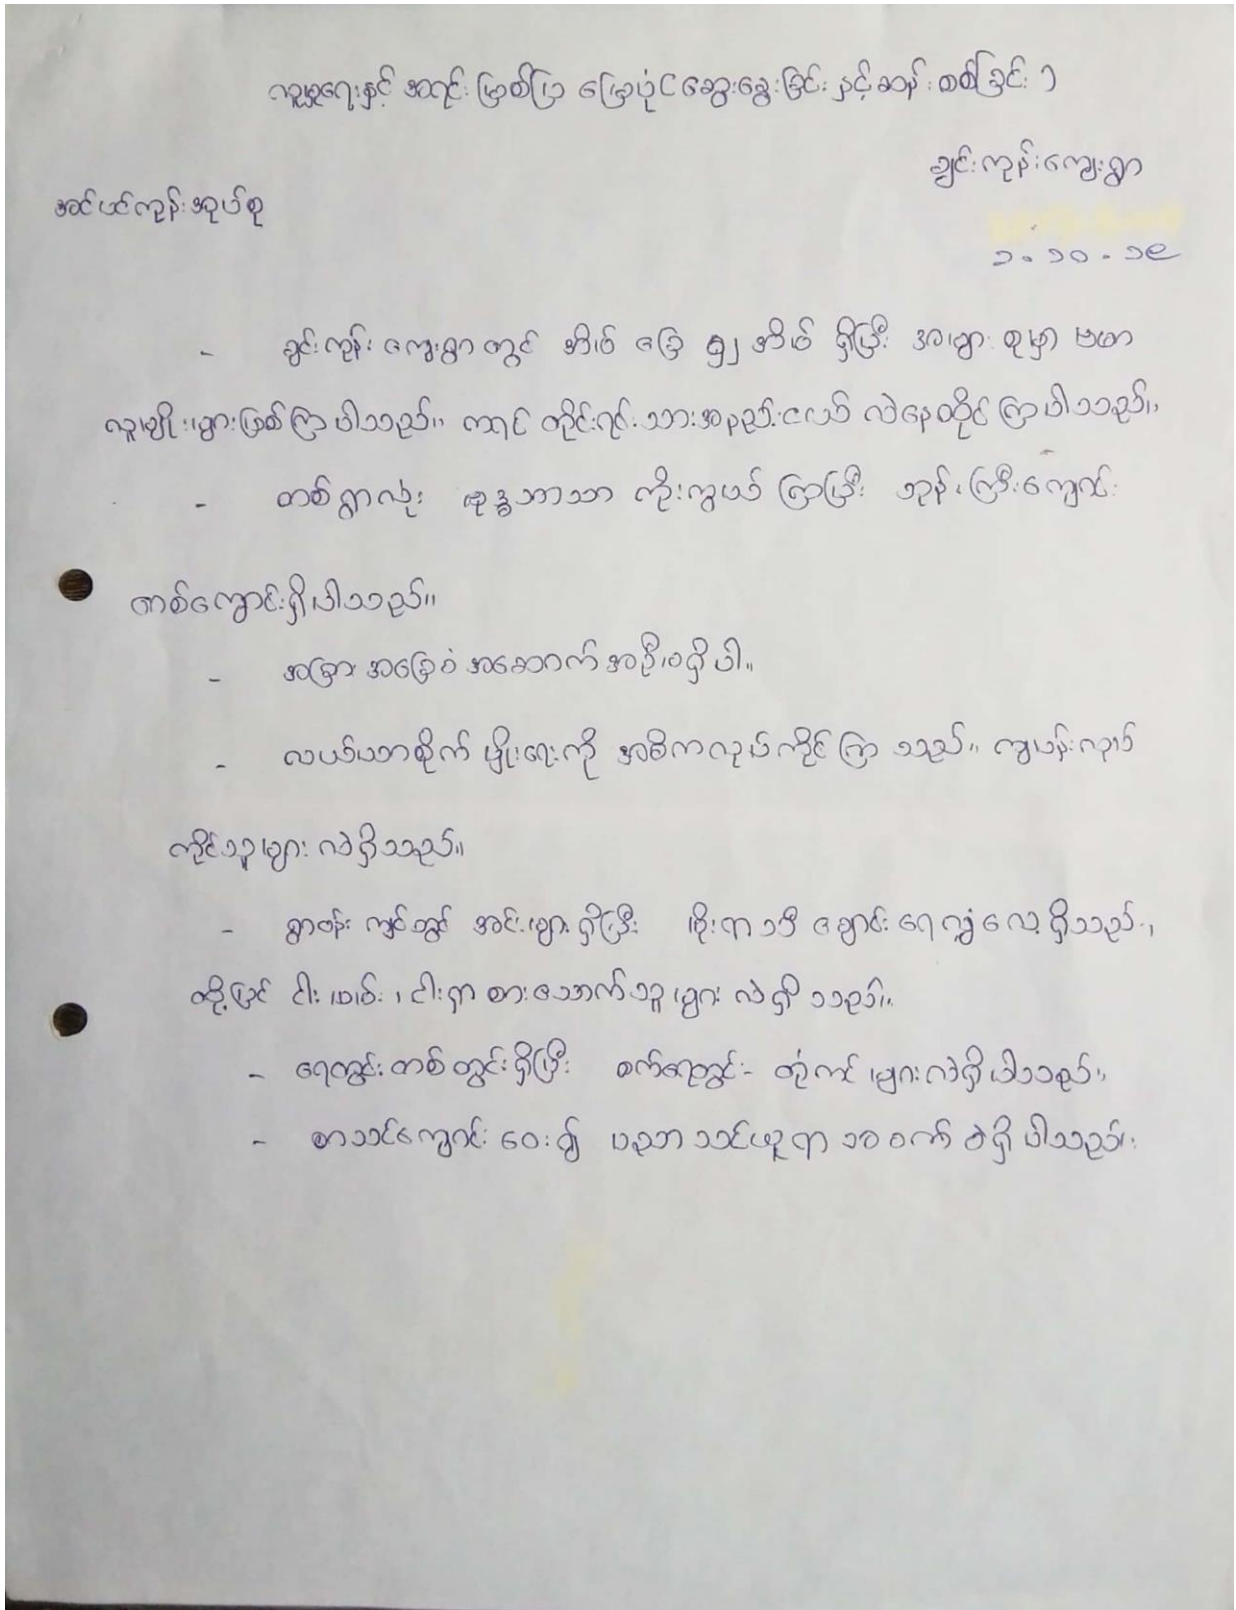 လူမှုရေးနှင့် အရင်းမြစ်ပြ မြေပုံ ဆွေးနွေးခြင်း နှင့် ဆန်းစစ်ခြင်း ၁
ချင်းကုန်းကျေးရွာ
အင်ပင်ကုန်းအုပ်စု
၁.၁၀.၁၉
- ချင်းကုန်း ကျေးရွာ တွင် အိမ် ခြေ အိမ် ရှိပြီး အများ စုမှာ ဗမာ
လူမျိုးများဖြစ်ကြပါသည်။ ကရင် တိုင်းရင်းသားအနည်းငယ် လဲနေထိုင်ကြပါသည်။
- တစ်ရွာလုံး ဗုဒ္ဓဘာသာ ကိုးကွယ် ကြပြီး ဘုန်းကြီးကျောင်း
တစ်ကျောင်းရှိပါသည်။
- အခြား အခြေခံ အဆောက်အဦးမရှိပါ။
- လယ်ယာစိုက် မျိုးရေးကို အဓိကလုပ်ကိုင်ကြ သည်။ ကျပန်းလုပ်
ကိုင်သူများ လဲရှိသည်။
- ရွာပန်း ကျင်တွင် အင်းများရှိပြီး မိုးရာသီ ချောင်းရေလျှံလေ့ရှိသည်။
ထို့ပြင် ငါးဖမ်း၊ ငါးရှာ စားသောက်သူများ လဲရှိ သည်။
- ရေတွင်း တစ်တွင်းရှိပြီး စက်ရေတွင်း- တုံကင်များလဲရှိပါသည်။
- စာသင်ကျောင်း ဝေး၍ ပညာသင်ယူရာ အခက် ခဲရှိပါသည်။